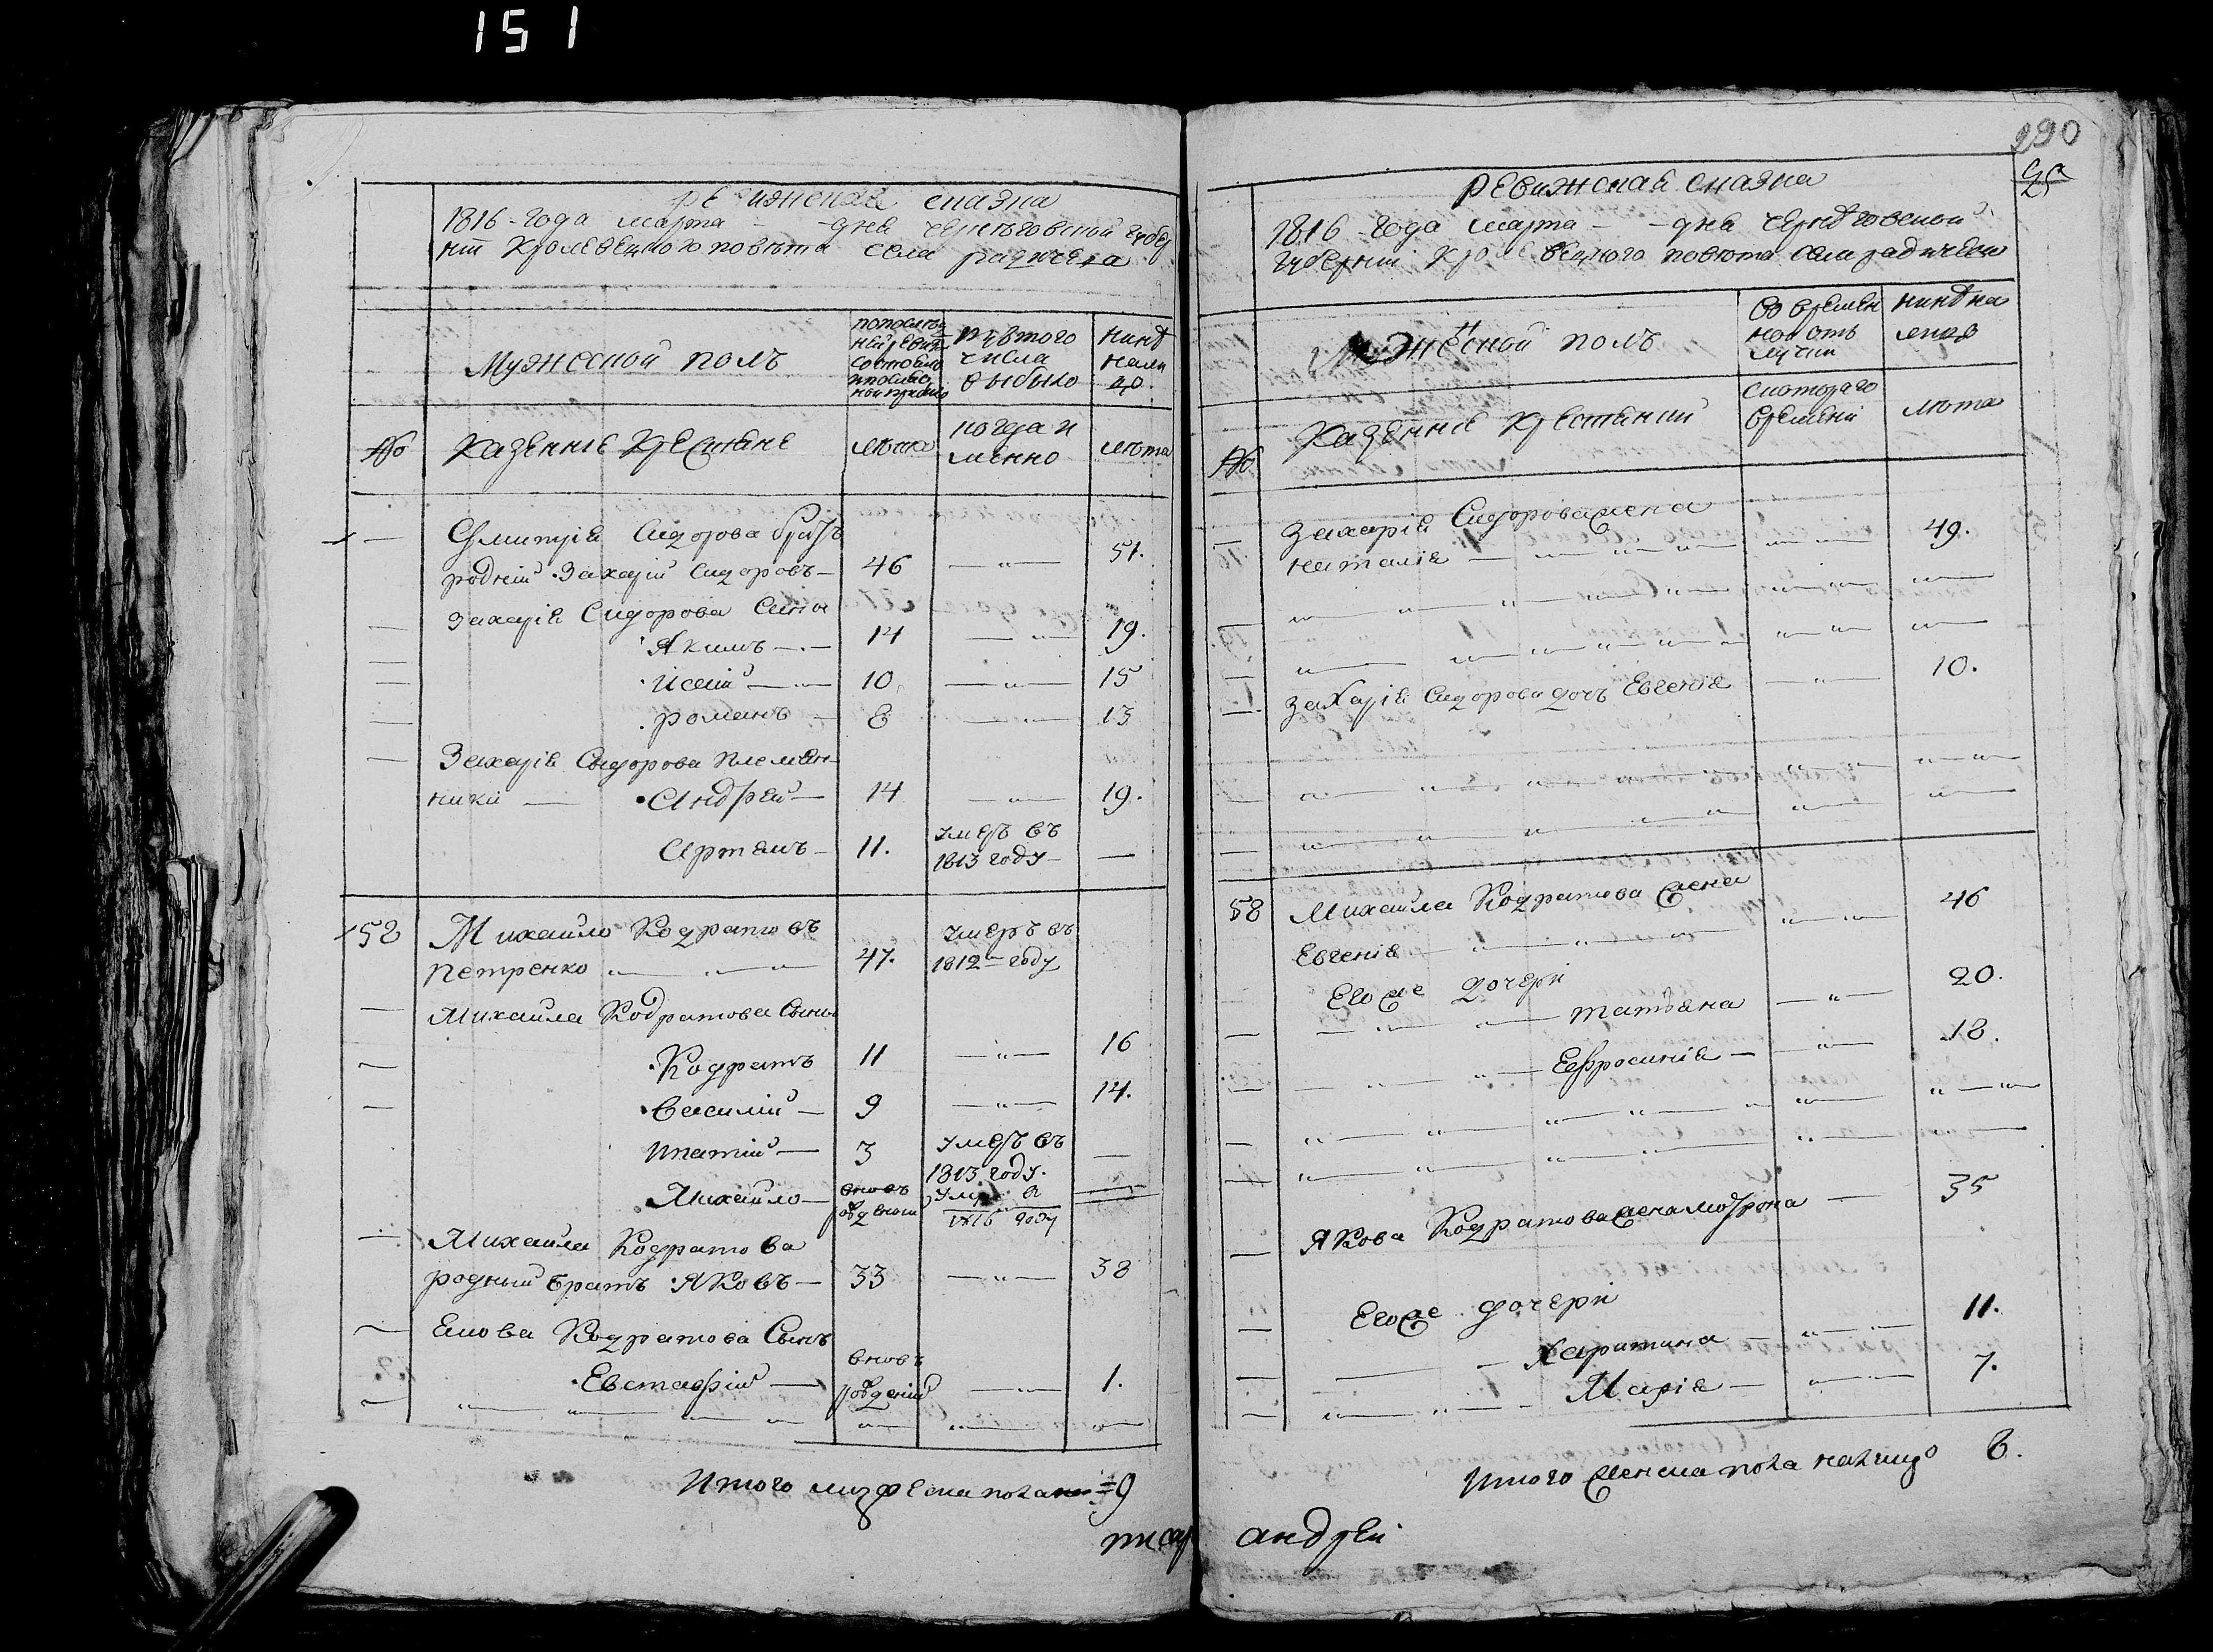 151
ревижская сказка
1816-года марта - - дня черниговской губер
нии Кролевецкого повѣта села радичева
Мужеской полъ
по послѣд
ней ревиз
состояло
Изъ того
числа
выбыло
нинѣ
нали
цо.
№
Казенніе Крестяне
лѣта
когда и
менно
лѣта
Дмитрія Сидорова братъ
родній Захарій Сидоровъ — 46 — „ — 51.
Захарія Сидорова Сины
Якимъ — 14 — „ — 19.
Исай — 10 — „ — 15
романъ — 8 — „ — 13
Захарія Сидорова племян-
ники — Андрей — 14 — „ — 19.
Артемъ — 11. умеръ въ
1813 году —
58 Михайло Кодратовъ
Петренко 47. умеръ въ
1812 году
Михайла Кодратова Сыны
Кодратъ 11 — „ — 16
Василий — 9 — „ — 14.
Ипатий — 3 умеръ въ
1813 году.
Михайло — вновь
рожденній
1816 году
Михайла Кодратова
родный братъ Яковъ — 33 — „ — 38
Якова Кодратова Сынъ
Евстафий — вновь
рожденій — „ — 1.
Итого мужеска пола = 9
писар
290
ревижская сказка
1816-года марта - - дня черниговской
губернии Кролевецкого повѣта села радичева
Женской полъ
Во времен
ной отъ
лучки
нинѣ на
лицо
№
Казенніе Крестяний
с котораго
времени
лѣта
Захарія Сидорова жена
наталія — 49.
Захарія Сидорова дочъ Евгенія — „ — 10.
58 Михайла Кодратова жена
Евгенія — 46
Его же дочери
татьяна — „ — 20.
Ефросинія — „ — 18.
Якова Кодратова жена мотрона — 35
Его же дочери
Харитина — 11.
Марія — 7.
Итого женска пола налицо 8.
андрей